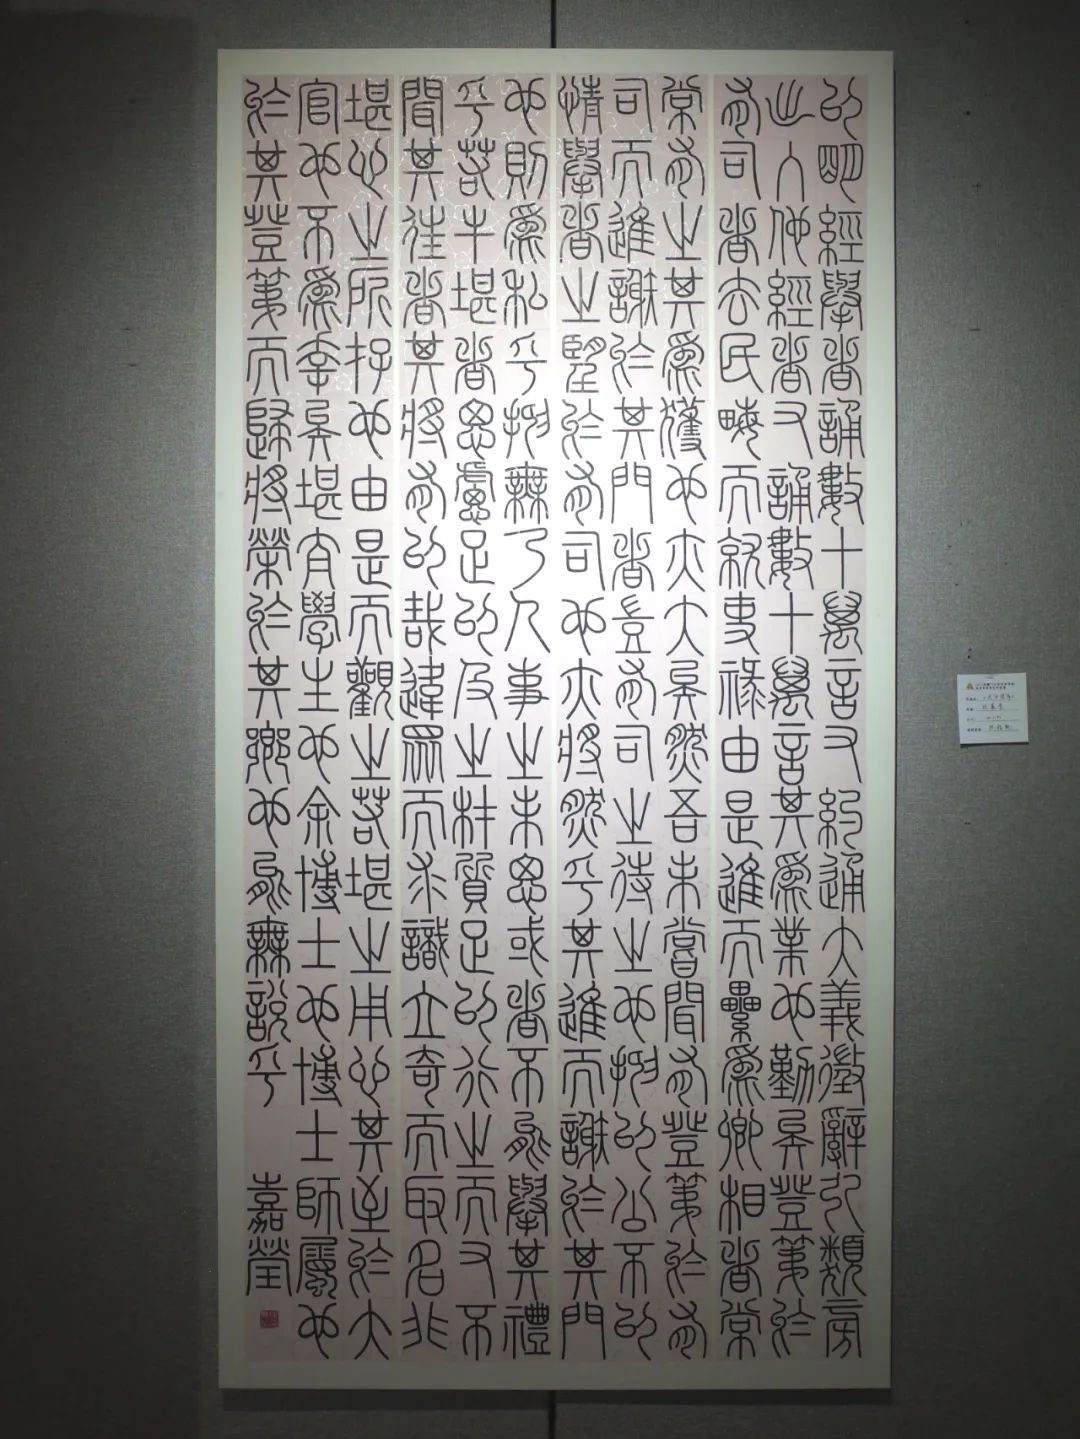 以明經舉者誦數十萬言又約通大義徵辭引類旁
出入他經者又誦數十萬言其為業也勤矣登第於
有司者去民畮而就吏祿由是進而纍為卿相者常
常有之其為獲也亦大矣然吾未嘗聞有登第於有
司而進謝於其門者豈有司之待之也抑以公不以
情舉者之望於有司也亦將然乎其進而謝於其門
也則為私乎抑無乃人事之未思或者不能舉其禮
乎若牛堪者思慮足以及之材質足以行之而又不
聞其往者其將有以哉違眾而求識立奇而取名非
堪心之所存也由是而觀之若堪之用心其至於大
官也不為幸矣堪太學生也余博士也博士師屬也
於其登第而歸將榮於其鄉也能無說乎 嘉瑩